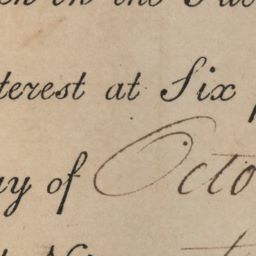 in the
terest at Six p
ay of Octo